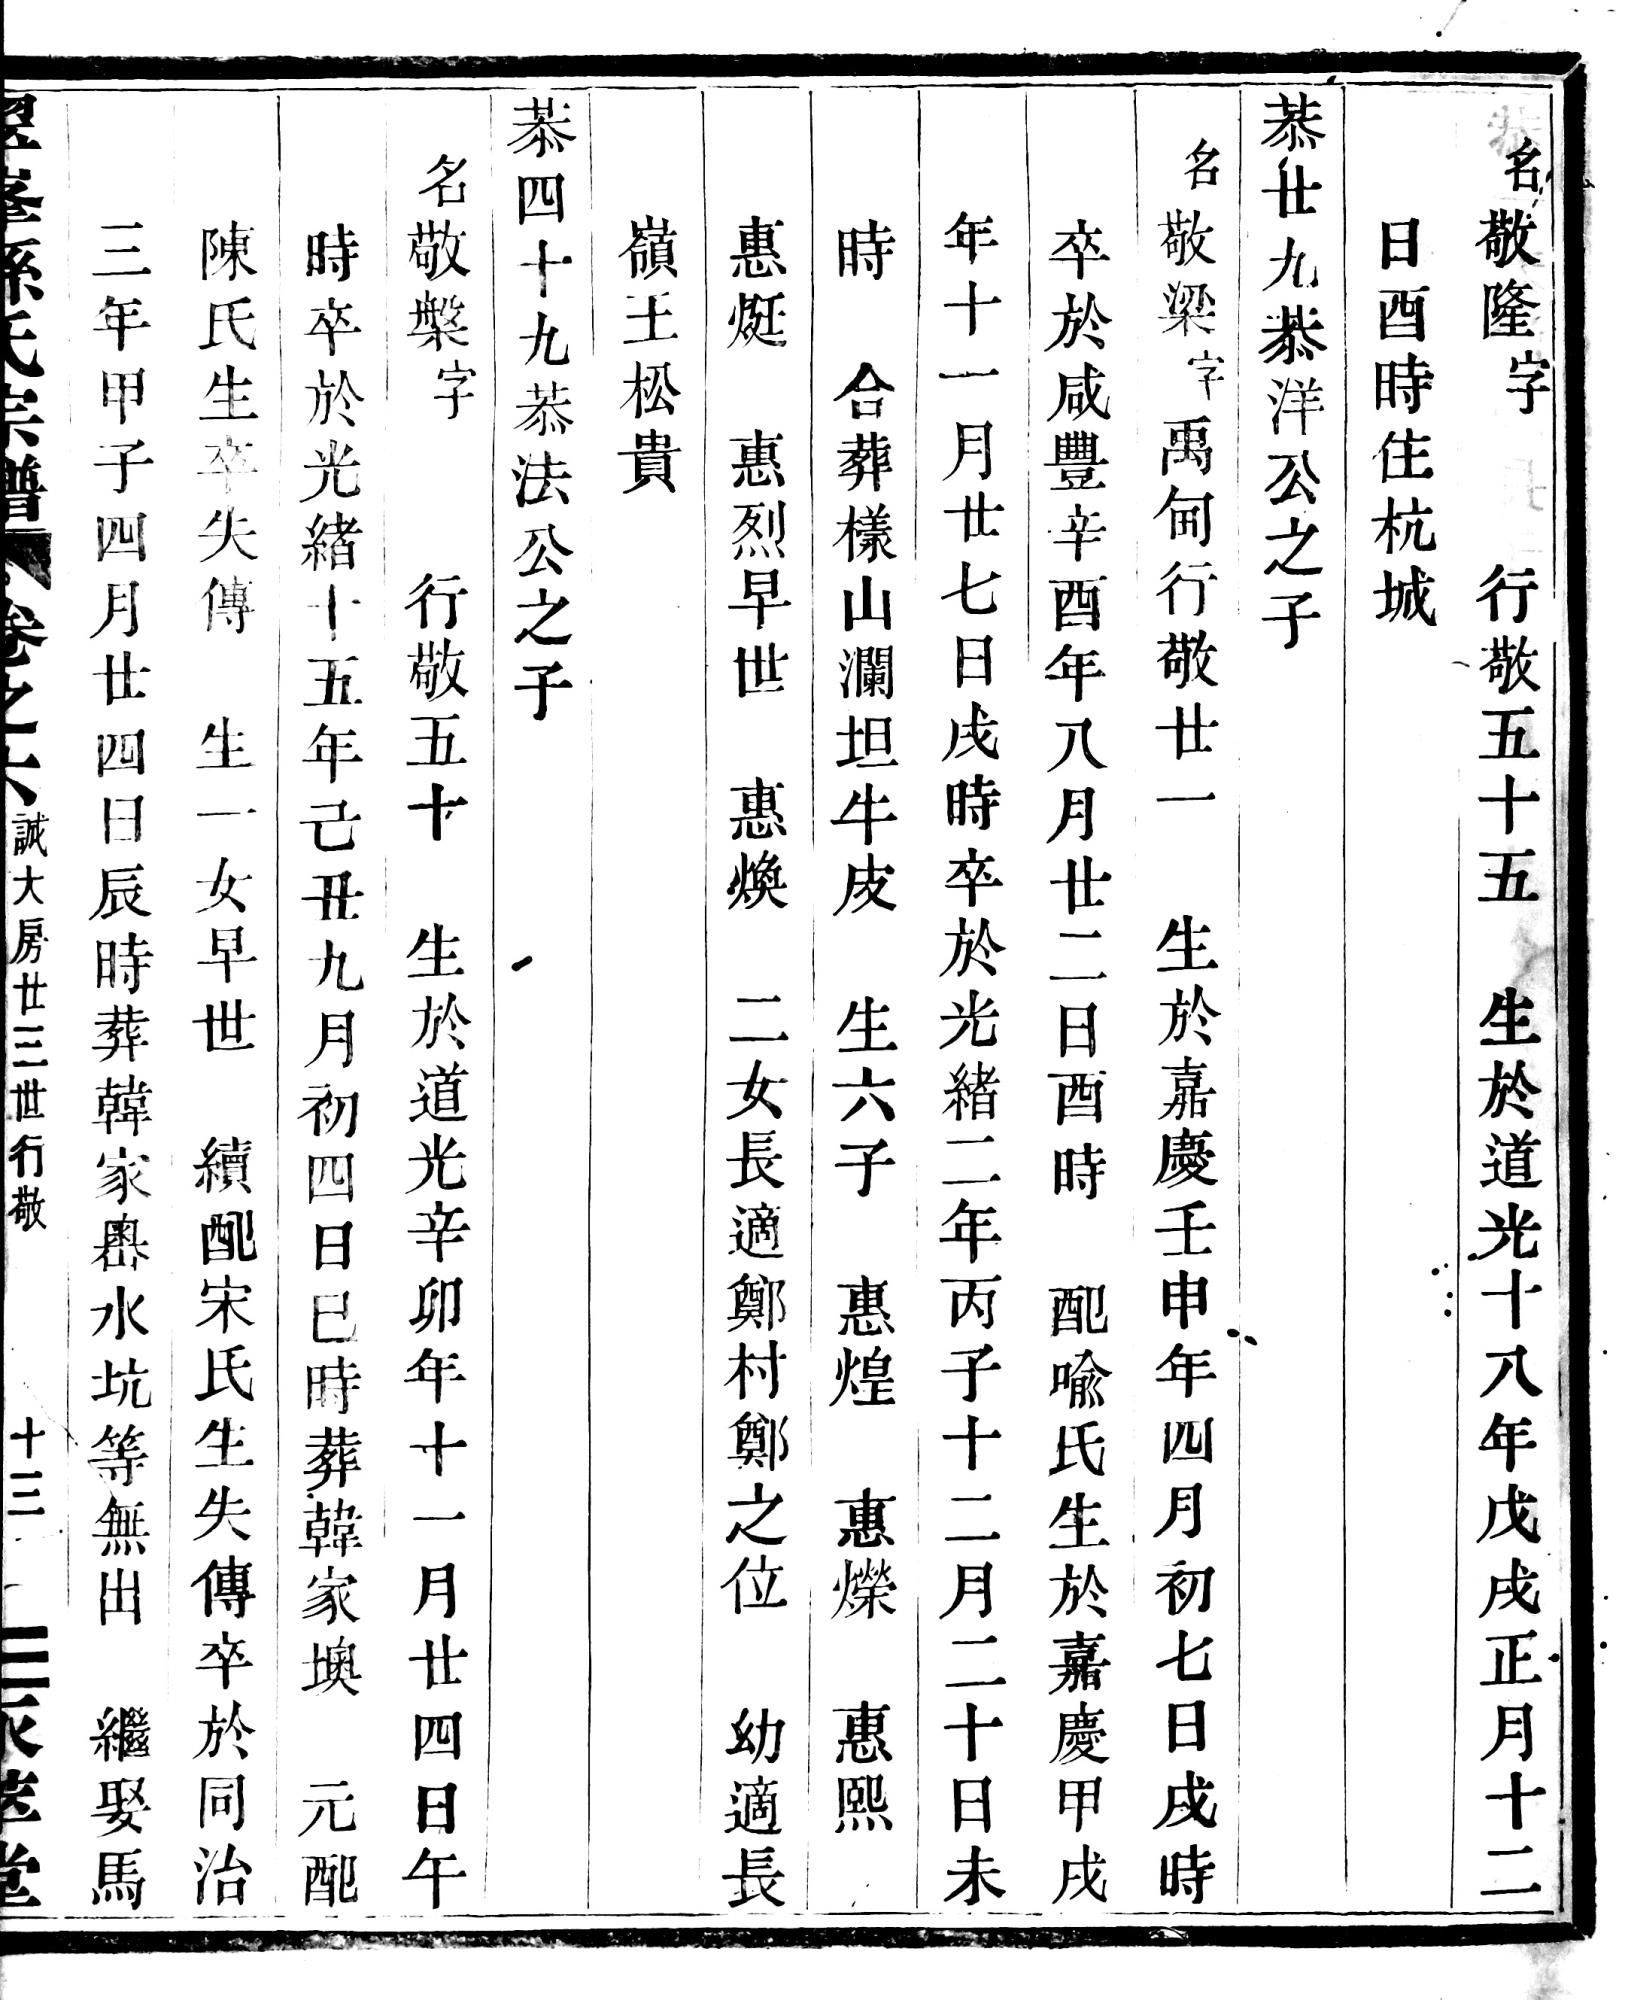 名敬隆字 行敬五十五 生於道光十八年戊戌正月十二
日酉時住杭城
恭廿九恭洋公之子
名敬梁字禹甸行敬廿一 生於嘉慶壬申年四月初七日戌時
卒於咸豐辛酉年八月廿二日酉時 配喩氏生於嘉慶甲戌
年十一月廿七日戌時卒於光緒二年丙子十二月二十日未
時 合葬樣山瀾坦牛皮 生六子 惠煌 惠爃 惠熙
惠烶 惠烈早世 惠煥 二女長適鄭村鄭之位 幼適長
嶺王松貴
恭四十九恭法公之子
名敬槃字 行敬五十 生於道光辛卯年十一月廿四日午
時卒於光緒十五年己丑九月初四日巳時葬韓家墺 元配
陳氏生卒失傳 生一女早世 續配宋氏生失傳卒於同治
三年甲子四月廿四日辰時葬韓家嶴水坑等無出 繼娶馬
峯孫氏宗譜 卷之六 誠大房廿三世行敬 十三 堂